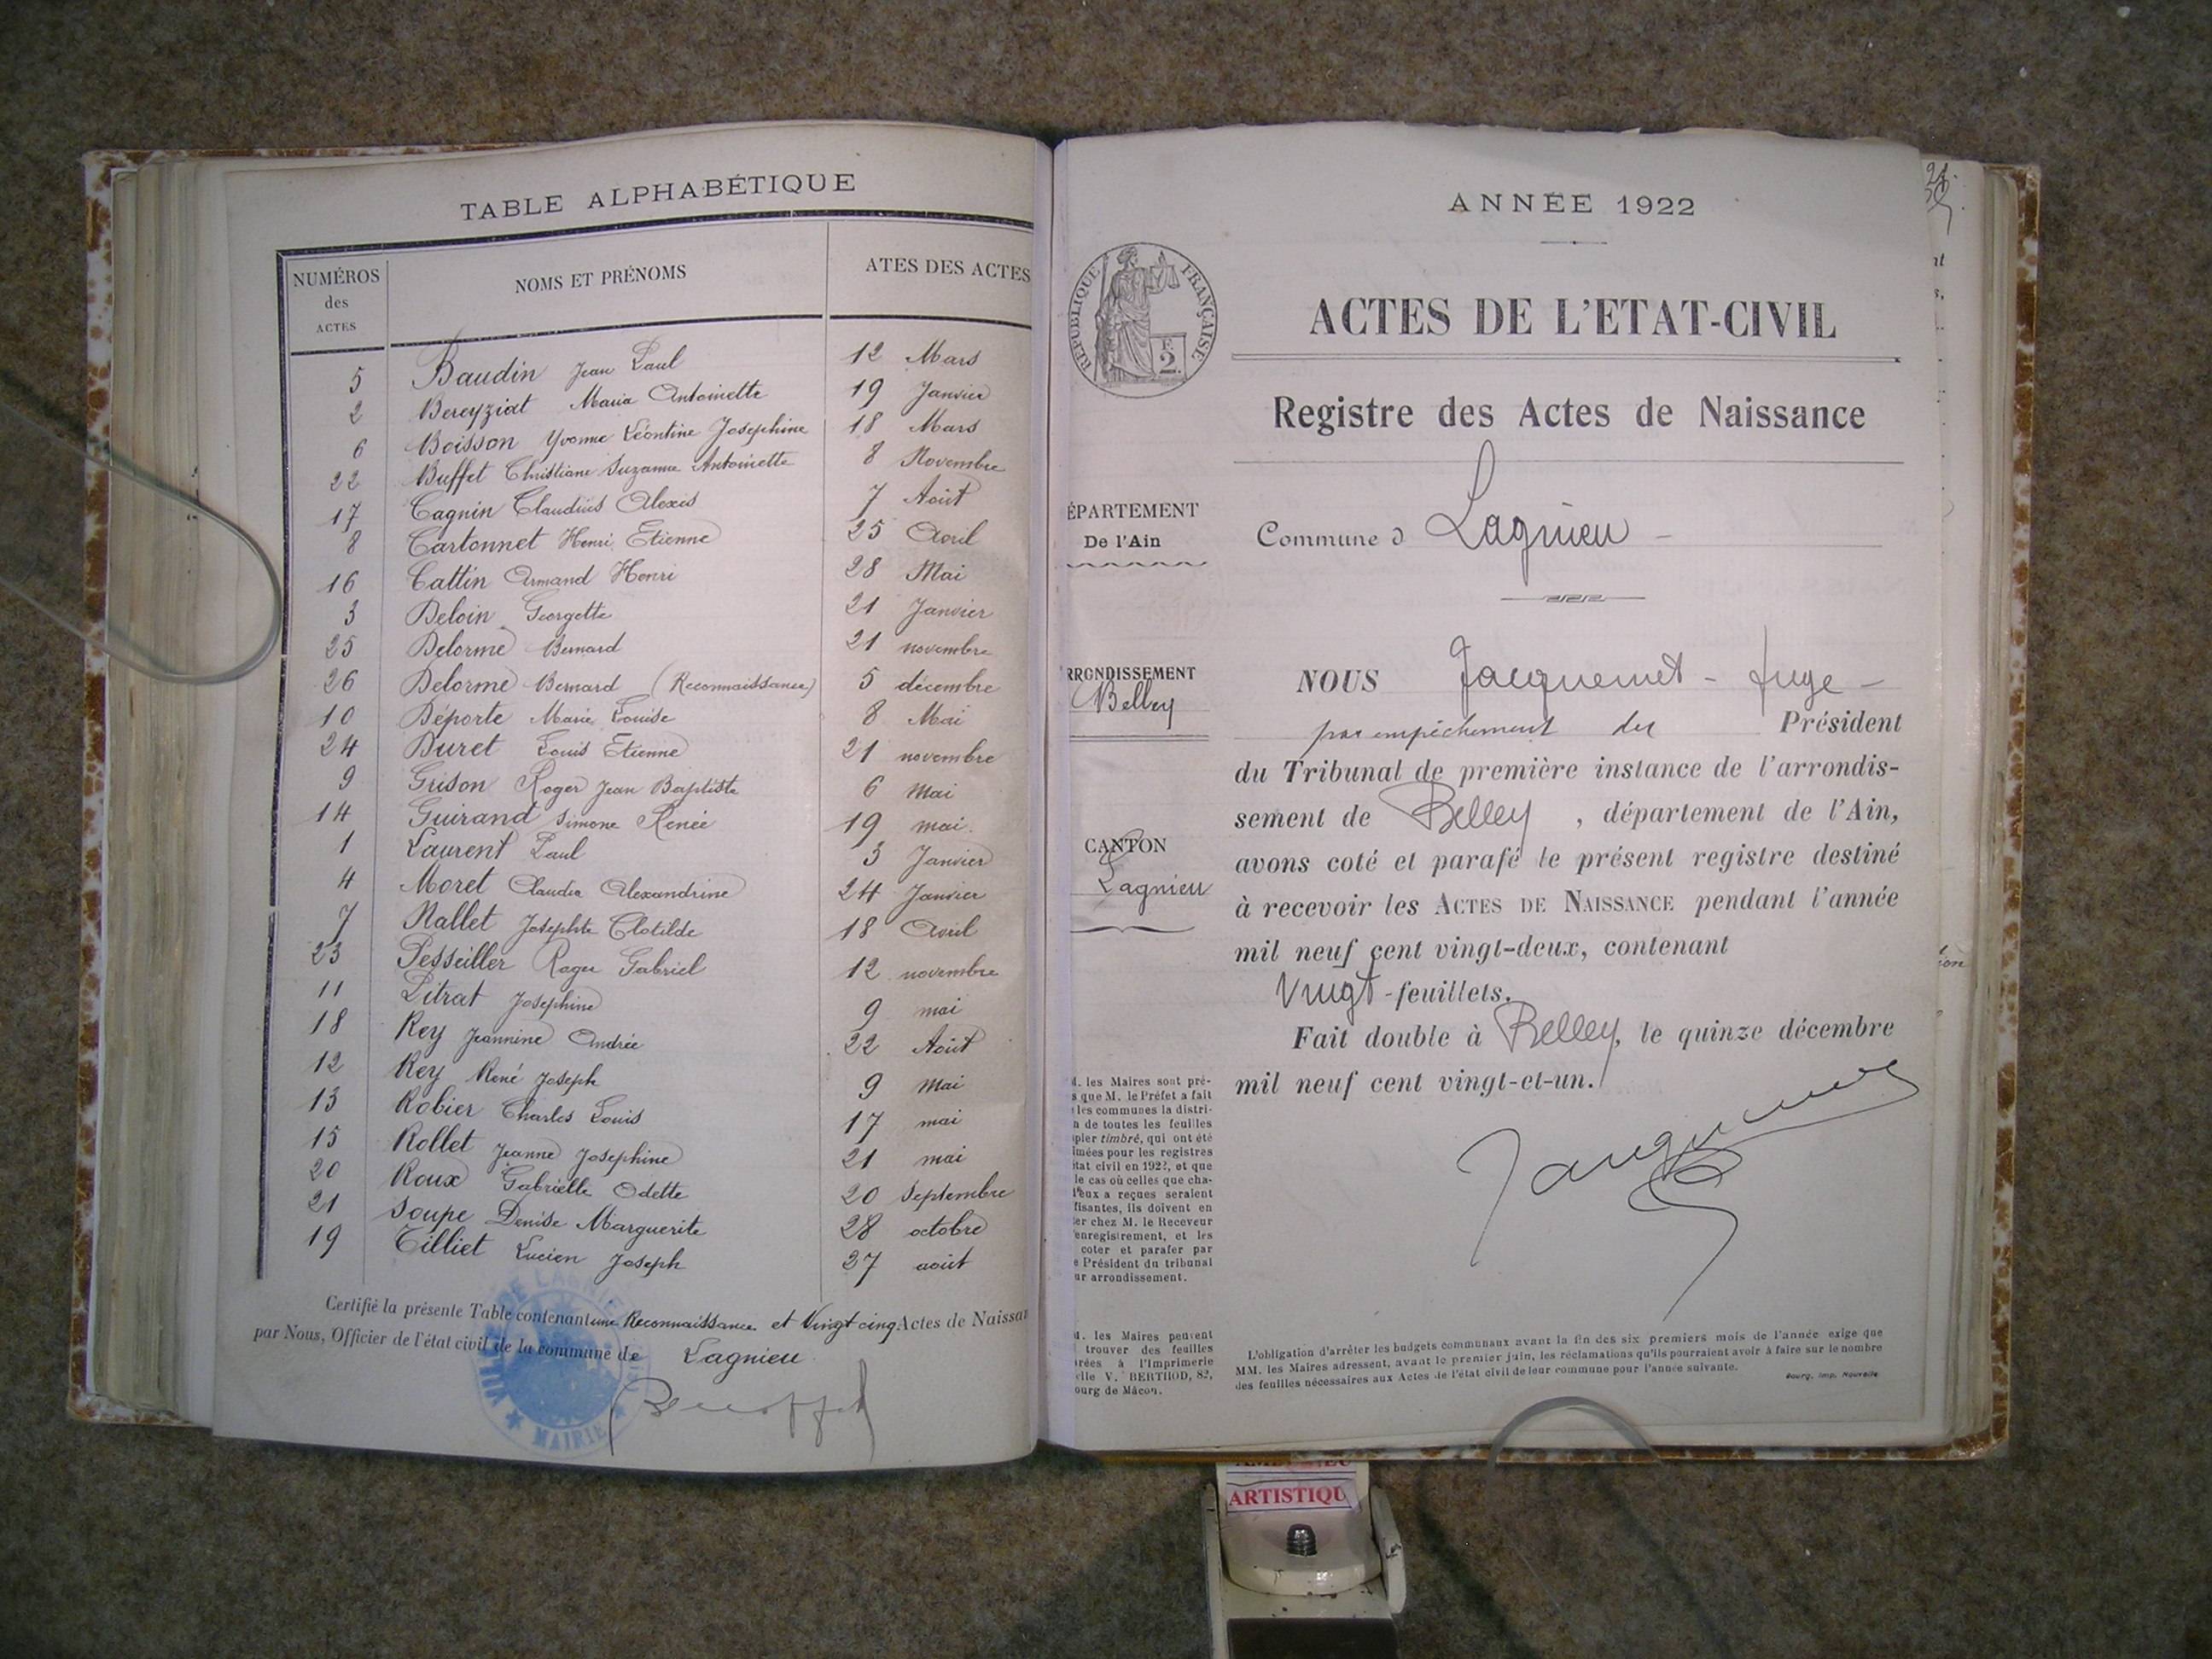 TABLE ALPHABÉTIQUE
NUMÉROS des ACTES NOMS ET PRÉNOMS ATES DES ACTES
5 Baudin Jean Paul 12 Mars
2 Bereyziat Maria Antoinette 19 Janvier
6 Boisson Yvonne Léontine Joséphine 18 Mars
22 Buffet Christiane Suzanne Antoinette 8 Novembre
17 Cagnin Claudius Alexis 7 Août
8 Cartonnet Henri Etienne 25 Avril
16 Cattin Armand Henri 28 Mai
3 Deloin Georgette 21 Janvier
25 Delorme Bernard 21 novembre
26 Delorme Bernard (Reconnaissance) 5 décembre
10 Déporte Marie Louise 8 Mai
24 Duret Louis Etienne 21 novembre
9 Grison Roger Jean Baptiste 6 Mai
14 Guirand Simone Renée 19 mai.
1 Laurent Paul 3 Janvier
4 Moret Claudia Alexandrine 24 Janvier
7 Nallet Josephte Clotilde 18 Avril
23 Pesseiller Roger Gabriel 12 novembre
11 Pitrat Joséphine 9 mai
18 Rey Jeannine Andrée 22 Août
12 Rey René Joseph 9 Mai
13 Robier Charles Louis 17 mai
15 Rollet Jeanne Joséphine 21 mai
20 Roux Gabrielle Odette 20 Septembre
21 Soupe Denise Marguerite 28 octobre
19 Tilliet Lucien Joseph 27 août
Certifié la présente Table contenant une Reconnaissance et Vingt cinq Actes de Naissan
par Nous, Officier de l'état civil de la commune de Lagnieu
MAIRIE
ANNÉE 1922
RÉPUBLIQUE FRANÇAISE
F. 2.
ACTES DE L'ETAT-CIVIL
Registre des Actes de Naissance
ÉPARTEMENT
De l'Ain
Commune d Lagnieu -
RRONDISSEMENT
Belley
NOUS Jacquemet - Juge -
par empêchement du Président
du Tribunal de première instance de l'arrondis-
sement de Belley, département de l'Ain,
CANTON
Lagnieu
avons coté et parafé le présent registre destiné
à recevoir les ACTES DE NAISSANCE pendant l'année
mil neuf cent vingt-deux, contenant
Vingt-feuillets.
Fait double à Belley, le quinze décembre
mil neuf cent vingt-et-un.
M. les Maires sont pré-
s que M. le Préfet a fait
les communes la distri-
n de toutes les feuilles
pier timbré, qui ont été
imées pour les registres
état civil en 1922, et que
le cas où celles que cha-
d'eux a reçues seraient
fisantes, ils doivent en
er chez M. le Receveur
enregistrement, et les
coter et parafer par
e Président du tribunal
ur arrondissement.
M. les Maires peuvent
trouver des feuilles
rées à l'Imprimerie
elle V. BERTHOD, 82,
ourg de Mâcon.
L'obligation d'arrêter les budgets communaux avant la fin des six premiers mois de l'année exige que
MM. les Maires adressent, avant le premier juin, les réclamations qu'ils pourraient avoir à faire sur le nombre
des feuilles nécessaires aux Actes de l'état civil de leur commune pour l'année suivante.
Bourg, Imp. Nouvelle
ARTISTIQU